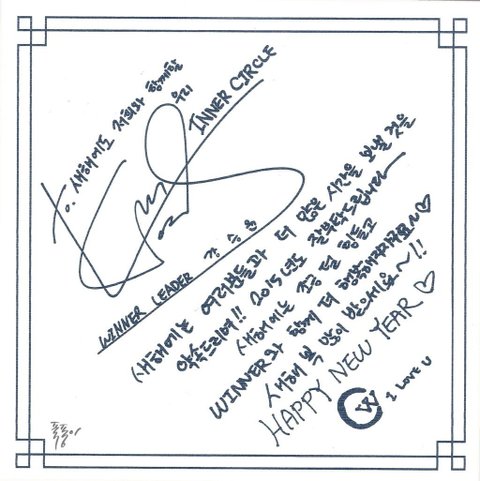 to. 새해에도 저희와 함께할
우리 INNER CIRCLE
WINNER LEADER 강승윤
새해에는 여러분들과 더 많은 시간을 보낼 것을
약속드리며!! 2015년도 잘부탁드립니다~
새해에는 조금 덜 힘들고
WINNER와 함께 더 행복해지자구요~♡
새해 복 많이 받으세요~!!
HAPPY NEW YEAR♡
W I LOVE U